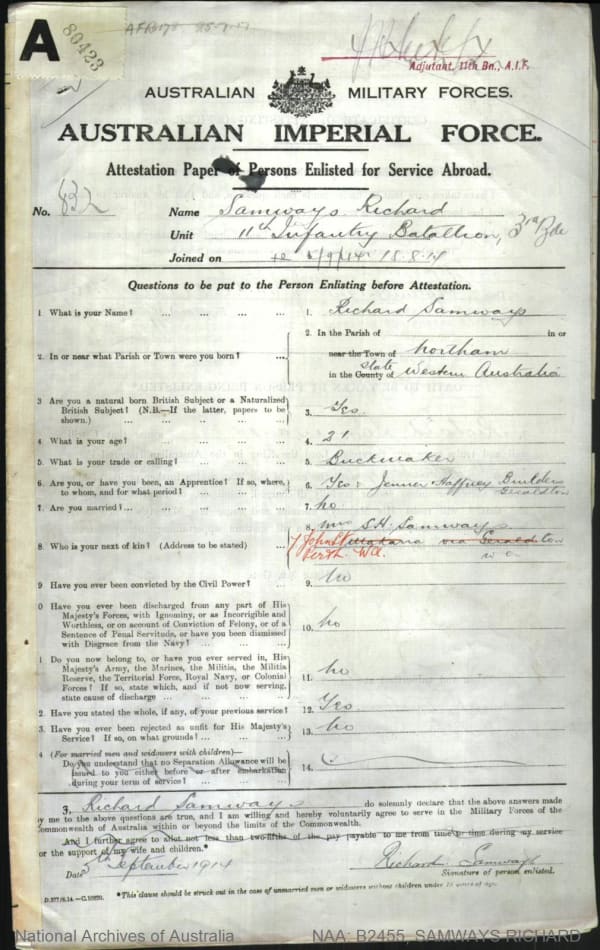 A
80423
Adjutant, 11th Bn., A.I.F.
AUSTRALIAN MILITARY FORCES.
AUSTRALIAN IMPERIAL FORCE.
Attestation Paper of Persons Enlisted for Service Abroad.
No. 832 Name Samways Richard
Unit 11th Infantry Batallion, 3rd Bde
Joined on 18.8.14
Questions to be put to the Person Enlisting before Attestation.
1 What is your Name? ... 1. Richard Samways
2. In or near what Parish or Town were you born? ... 2. In the Parish of in or
near the Town of Northam
State
in the County of Western Australia
3 Are you a natural born British Subject or a Naturalized
British Subject? (N.B.—If the latter, papers to be
shown.) ... 3. Yes
4 What is your age? ... 4. 21
5. What is your trade or calling? ... 5.
6. Are you, or have you been, an Apprentice? If so, where, 6. Yes: Jenner Builders
to whom, and for what period? ... Geraldton
7. Are you married? ... 7. No
8. Who is your next of kin? (Address to be stated) ... 8. Mrs S.H. Samways
via Geraldton
Perth. WA. W A
9 Have you ever been convicted by the Civil Power? ... 9. No
0 Have you ever been discharged from any part of His
Majesty's Forces, with Ignominy, or as Incorrigible and
Worthless, or on account of Conviction of Felony, or of a
Sentence of Penal Servitude, or have you been dismissed
with Disgrace from the Navy? ... 10. No
1 Do you now belong to, or have you ever served in, His
Majesty's Army, the Marines, the Militia, the Militia
Reserve, the Territorial Force, Royal Navy, or Colonial
Forces? If so, state which, and if not now serving,
state cause of discharge ... 11. No
2. Have you stated the whole, if any, of your previous service? 12. Yes
3. Have you ever been rejected as unfit for His Majesty's
Service? If so, on what grounds? ... 13. No
4 (For married men and widowers with children)—
Do you understand that no Separation Allowance will be
issued to you either before or after embarkation
during your term of service? ... 14.
I, Richard Samways do solemnly declare that the above answers made
by me to the above questions are true, and I am willing and hereby voluntarily agree to serve in the Military Forces of the
Commonwealth of Australia within or beyond the limits of the Commonwealth.
And I further agree to allot not less than two-fifths of the pay payable to me from time to time during my service
for the support of my wife and children.*
Date 5th September 1914 Richard Samways
Signature of person enlisted.
*This clause should be struck out in the case of unmarried men or widowers without children under 18 years of age.
National Archives of Australia NAA: B2455, SAMWAYS RICHARD